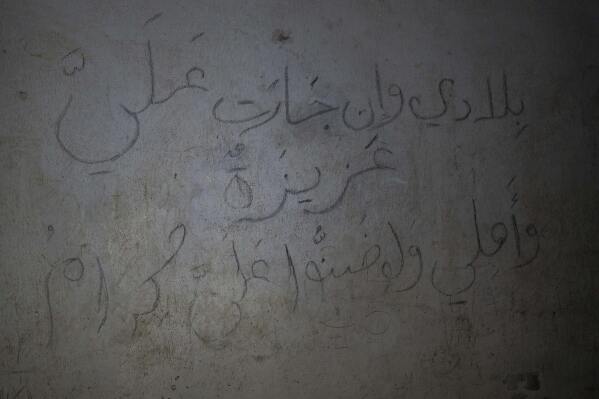 بِلادي وإن جَارَت عَلَيَّ
عَزيزَةٌ
وَأَهلِي وَلو ضَنُّوا عَلَيَّ كرامُ